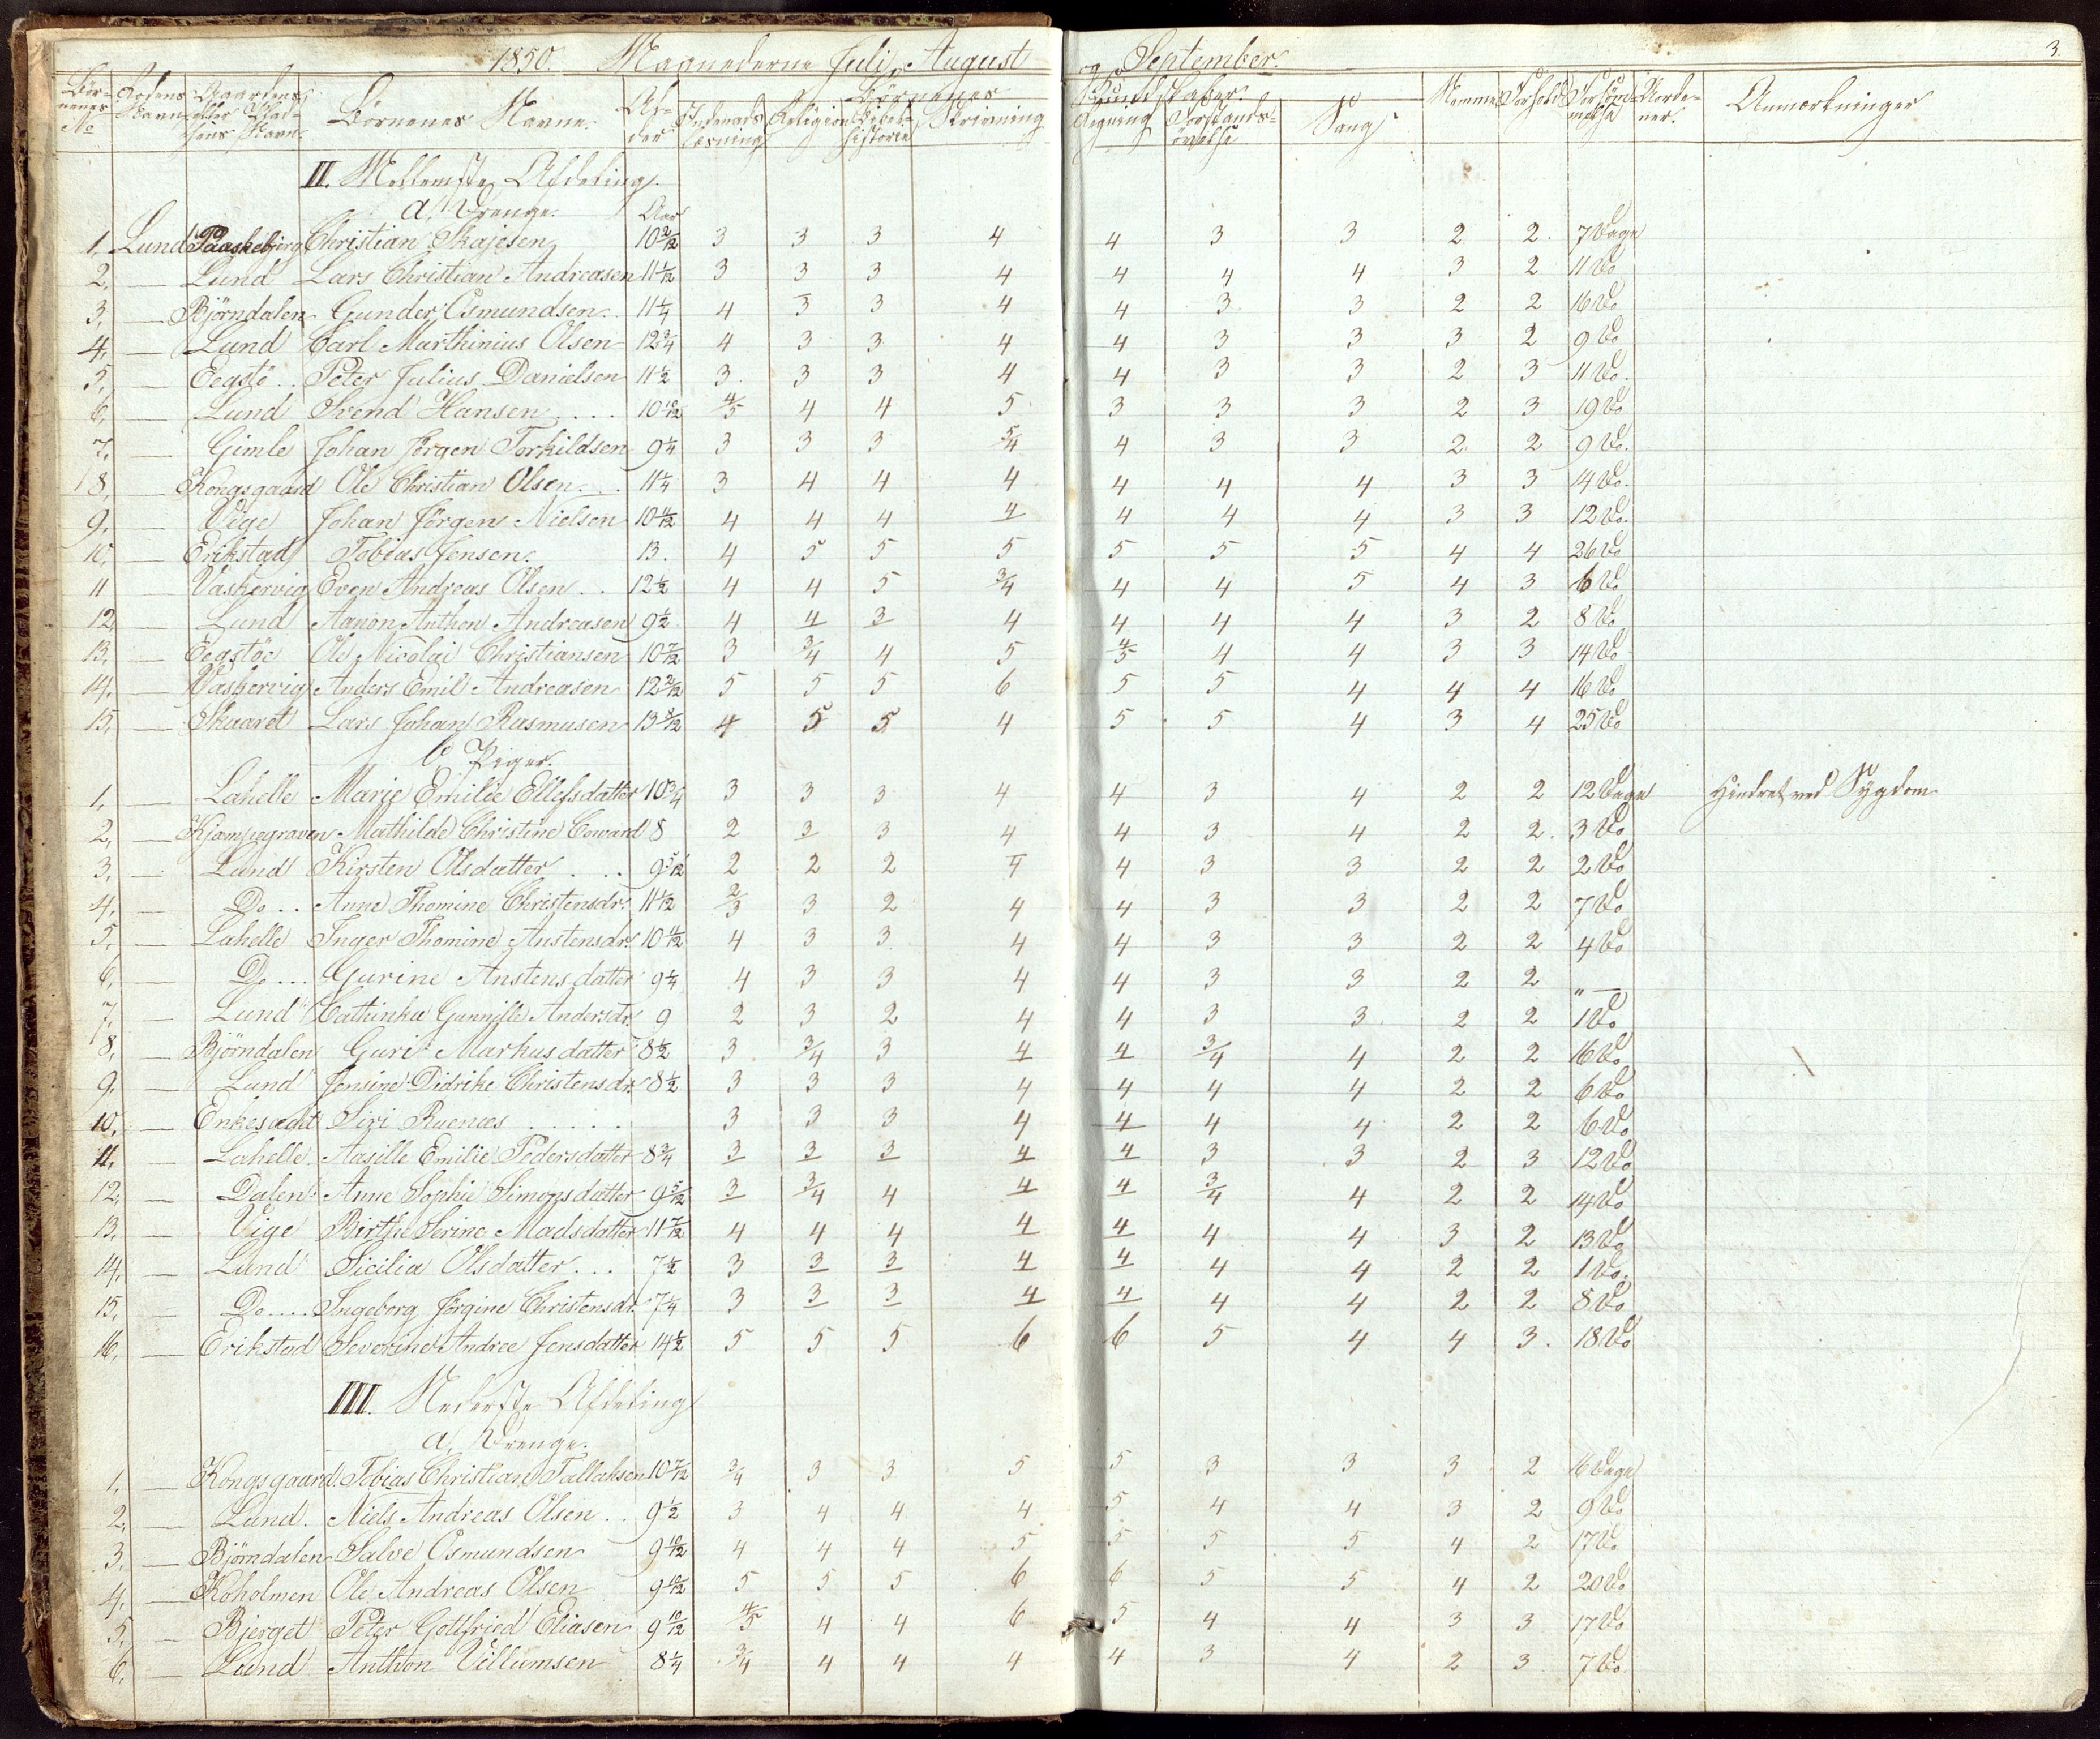 1850. Maanederne Juli, August og September. 3.
Börnenes No | Rodens Navn | Gaardens eller Pladsens Navn. | Börnenes Navne. | Alder | Börnenes Kundskaber. | Nemme | Forhold | Forsömmelse | Anmærkninger
Indenadslæsning | Religion | Bibelhistorie | Skrivning | Regning | Forstandsövelse | Sang
II. Mellemste Afdeling.
a, Drenge. Aar
1, Lund Paaskebjerg Christian Skajesen 10 2/12 3 3 3 4 4 3 3 2 2. 7 Dage
2, — Lund Lars Christian Andreasen 11 1/12 3 3 3 4 4 4 4 3 2 11 Do
3, — Björndalen Gunder Osmundsen 11 1/4 4 3 3 4 4 3 3 2 2 16 Do
4, — Lund Carl Marthinius Olsen 12 3/4 4 3 3 4 4 3 3 3 2 9 Do
5, — Eegstö Peter Julius Danielsen 11 1/2 3 3 3 4 4 3 3 2 3 11 Do.
6, — Lund Svend Hansen 10 10/12 4/5 4 4 5 3 3 3 2 3 19 Do
7, — Gimle Johan Jörgen Torkildsen 9 1/4 3 3 3 5/4 4 3 3 2 2 9 Do.
8, — Kongsgaard Ole Christian Olsen 11 1/4 3 4 4 4 4 4 4 3 3 14 Do.
9, — Vige Johan Jörgen Nielsen 10 11/12 4 4 4 4 4 4 4 3 3 12 Do.
10, — Erikstad Tobias Jensen 13. 4 5 5 5 5 5 5 4 4 26 Do
11 — Vaskervig Even Andreas Olsen 12 1/2 4 4 5 3/4 4 4 5 4 3 6 Do
12, — Lund Aanon Anthon Andreasen 9 1/2 4 4 3 4 4 4 4 3 2 8 Do
13, — Eegstöe Ole Nicolai Christiansen 10 7/12 3 3/4 4 5 4/5 4 4 3 3 14 Do
14, — Vaskervig Anders Emil Andreasen 12 2/12 5 5 5 6 5 5 4 4 4 16 Do
15, — Skaaret Lars Johan Rasmusen 13 8/12 4 5 5 4 5 5 4 3 4 25 Do
b Piger.
1, — Lahelle Marie Emilie Ellefsdatter 10 3/4 3 3 3 4 4 3 4 2 2 12 Dage Hindret ved Sygdom
2, — Kjæmpegraven Mathilde Christine Coward 8 2 3 3 4 4 3 4 2 2. 3 Do
3, — Lund Kirsten Olsdatter 9 5/12 2 2 2 4 4 3 3 2 2 2 Do
4, — Do Anne Thomine Christensdr. 11 1/12 2/3 3 2 4 4 3 3 2 2 7 Do
5, — Lahelle Inger Thomine Anstensdr. 10 11/12 4 3 3 4 4 3 3 2 2 4 Do
6, — Do Gurine Anstensdatter 9 1/4 4 3 3 4 4 3 3 2 2 " —
7, — Lund Cathinka Gunnille Andersdr. 9 2 3 2 4 4 3 3 2 2 1 Do
8, — Björndalen Guri Markusdatter 8 1/2 3 3/4 3 4 4 3/4 4 2 2 16 Do
9, — Lund Jensine Didrike Christensdr. 8 1/2 3 3 3 4 4 4 4 2 2 6 Do
10, — Enkesædet Siri Ruenæs 3 3 3 4 4 4 4 2 2 6 Do
11, — Lahelle Aasille Emilie Pedersdatter 8 3/4 3 3 3 4 4 3 3 2 3 12 Do
12, — Dalen Anne Sophie Simonsdatter 9 5/12 3 3/4 4 4 4 3/4 4 2 2 14 Do
13, — Vige Birthe Serine Madsdatter 11 7/12 4 4 4 4 4 4 4 3 2 13 Do
14, — Lund Sicilia Olsdatter 7 1/2 3 3 3 4 4 4 4 2 2 1 Do.
15, — Do Ingeborg Jörgine Christensdr. 7 1/4 3 3 3 4 4 4 4 2 2 8 Do
16, — Erikstad Severine Andree Jensdatter 14 1/2 5 5 5 6 6 5 4 4 3. 18 Do
III. Nederste Afdeling
a, Drenge.
1, — Kongsgaard Tobias Christian Tallaksen 10 7/12 3/4 3 3 5 5 3 3 3 2 16 Dage
2, — Lund Niels Andreas Olsen 9 1/2 3 4 4 4 5 4 4 3 2 9 Do
3, — Björndalen Salve Osmundsen 9 10/12 4 4 4 5 5 5 5 4 2 17 Do
4, — Koholmen Ole Andreas Olsen 9 10/12 5 5 5 6 6 5 5 4 2 20 Do
5, — Bjerget Peter Gottfried Eliasen 9 10/12 4/5 4 4 6 5 4 4 3 3 17 Do
6, — Lund Anthon Villumsen 8 1/4 3/4 4 4 4 4 3 4 2 3 7 Do.